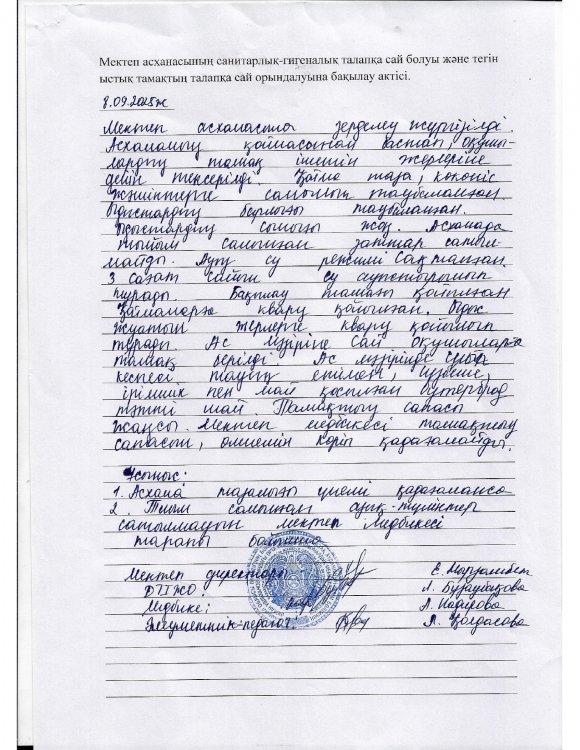 Мектеп асханасының санитарлық-гигеналық талапқа сай болуы және тегін
ыстық тамақтың талапқа сай орындалуына бақылау актісі.
8.09.2025ж
Мектеп асханасына зерделеу жүргізілді.
Асхананың қоймасынан бастап, оқушы-
лардың тамақ ішетін жерлеріне
дейін тексерілді. Қойма таза, көкөніс
жәшіктерге салынып таңбаланған.
Ыдыстардың барлығы таңбаланған.
Ыдыстардың сынығы жоқ. Асханада
тыйым салынған заттар сатыл-
майды. Ауыз су режимі сақталған
3 сағат сайын су ауыстырылып
тұрады. Бақылау тамағы қойылған
Қоймаларға кварц қойылған. Ыдыс
жуатын жерлерге кварц қойылып
тұрады. Ас мәзіріне сай оқушыларға
тамақ берілді. Ас мәзірінде
кеспесі тауық етімен,
ірімшік пен май қосылған бутерброд
тәтті шай. Тамақтың сапасы
жақсы. Мектеп медбикесі тамақтың
сапасын, өлшемін көріп қадағалайды.
Ұсыныс:
1. Асхана тазалығы үнемі қадағалансын
2. Тиым салынған азық-түліктер
сатылмауын мектеп медбикесі
тарапы
Мектеп директоры: Е.
ДТІЖО: Л.
Медбике: Л. Надирова
Әлеуметтік педагог: Л. Қолдасова